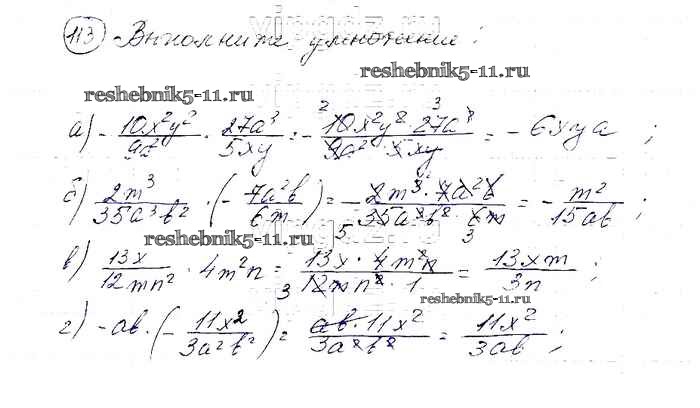 113 Выполните умножение:
reshebnik5-11.ru
reshebnik5-11.ru
а) - 10x²y²/9a² · 27a³/5xy = - 10x²y² · 27a³/9a² · 5xy = - 6xya ;
б) 2m³/35a³b² · (- 7a²b/6m) = - 2m³ · 7a²b/35a³b² · 6m = - m²/15ab ;
reshebnik5-11.ru
в) 13x/12mn² · 4m²n = 13x · 4m²n/12mn² · 1 = 13xm/3n ;
reshebnik5-11.ru
г) -ab · (- 11x²/3a²b²) = ab · 11x²/3a²b² = 11x²/3ab ;